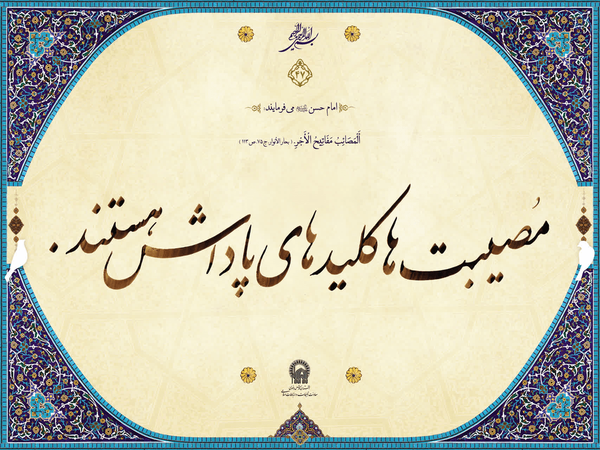 بسم الله الرحمن الرحیم
۴۷
امام حسن علیه‌السلام می‌فرمایند:
اَلْمَصَائِبُ مَفَاتِیحُ الْأَجْرِ. (بحارالأنوار، ج۷۵، ص۱۱۳)
مُصیبت ها کلیدهای پاداش هستند.